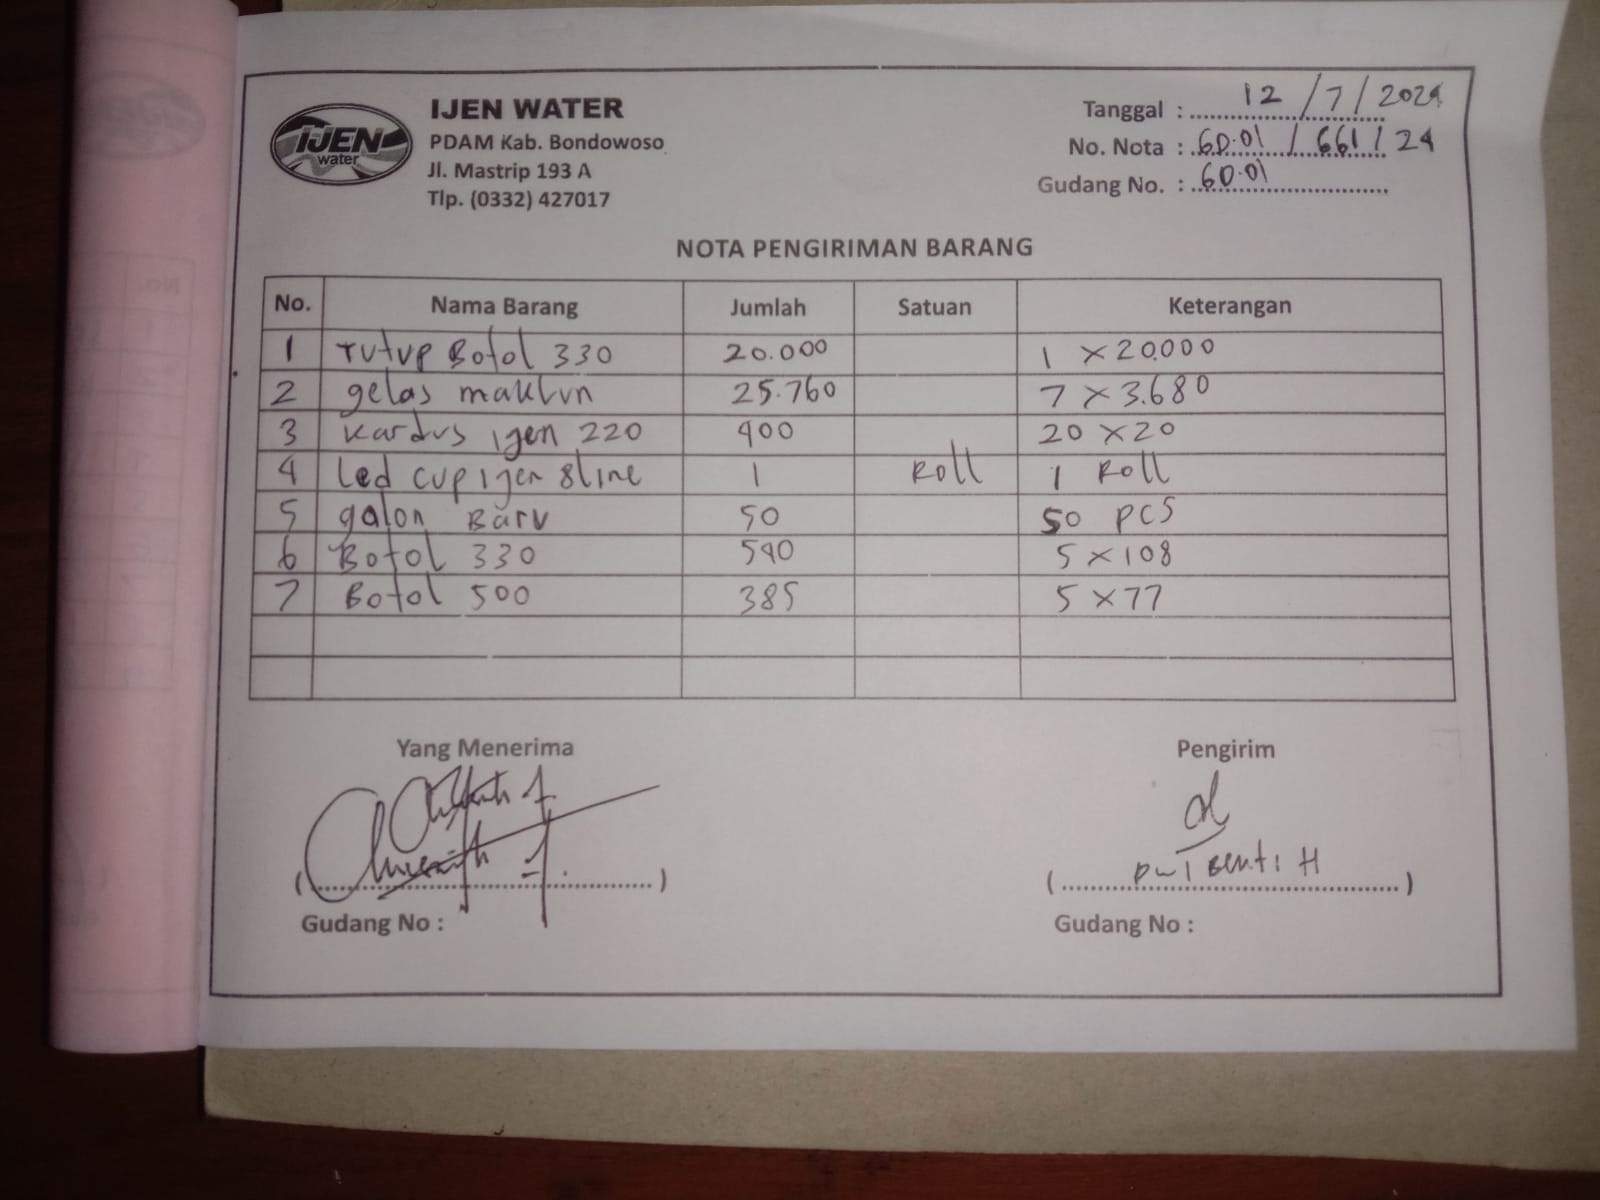 IJEN
water
IJEN WATER
PDAM Kab. Bondowoso
Jl. Mastrip 193 A
Tlp. (0332) 427017
Tanggal : 12 / 7 / 2024
No. Nota : 60.01 / 661 / 24
Gudang No. : 60.01
NOTA PENGIRIMAN BARANG
No. Nama Barang Jumlah Satuan Keterangan
1 Tutup Botol 330 20.000 1 x 20.000
2 gelas maklun 25.760 7 x 3.680
3 Kardus ijen 220 400 20 x 20
4 Led cup ijen 8line 1 Roll 1 Roll
5 galon Baru 50 50 PCS
6 Botol 330 540 5 x 108
7 Botol 500 385 5 x 77
Yang Menerima Pengirim
Gudang No : Gudang No :